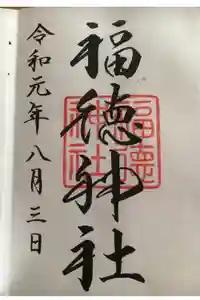 福徳神社
令和元年八月三日
福徳
神社